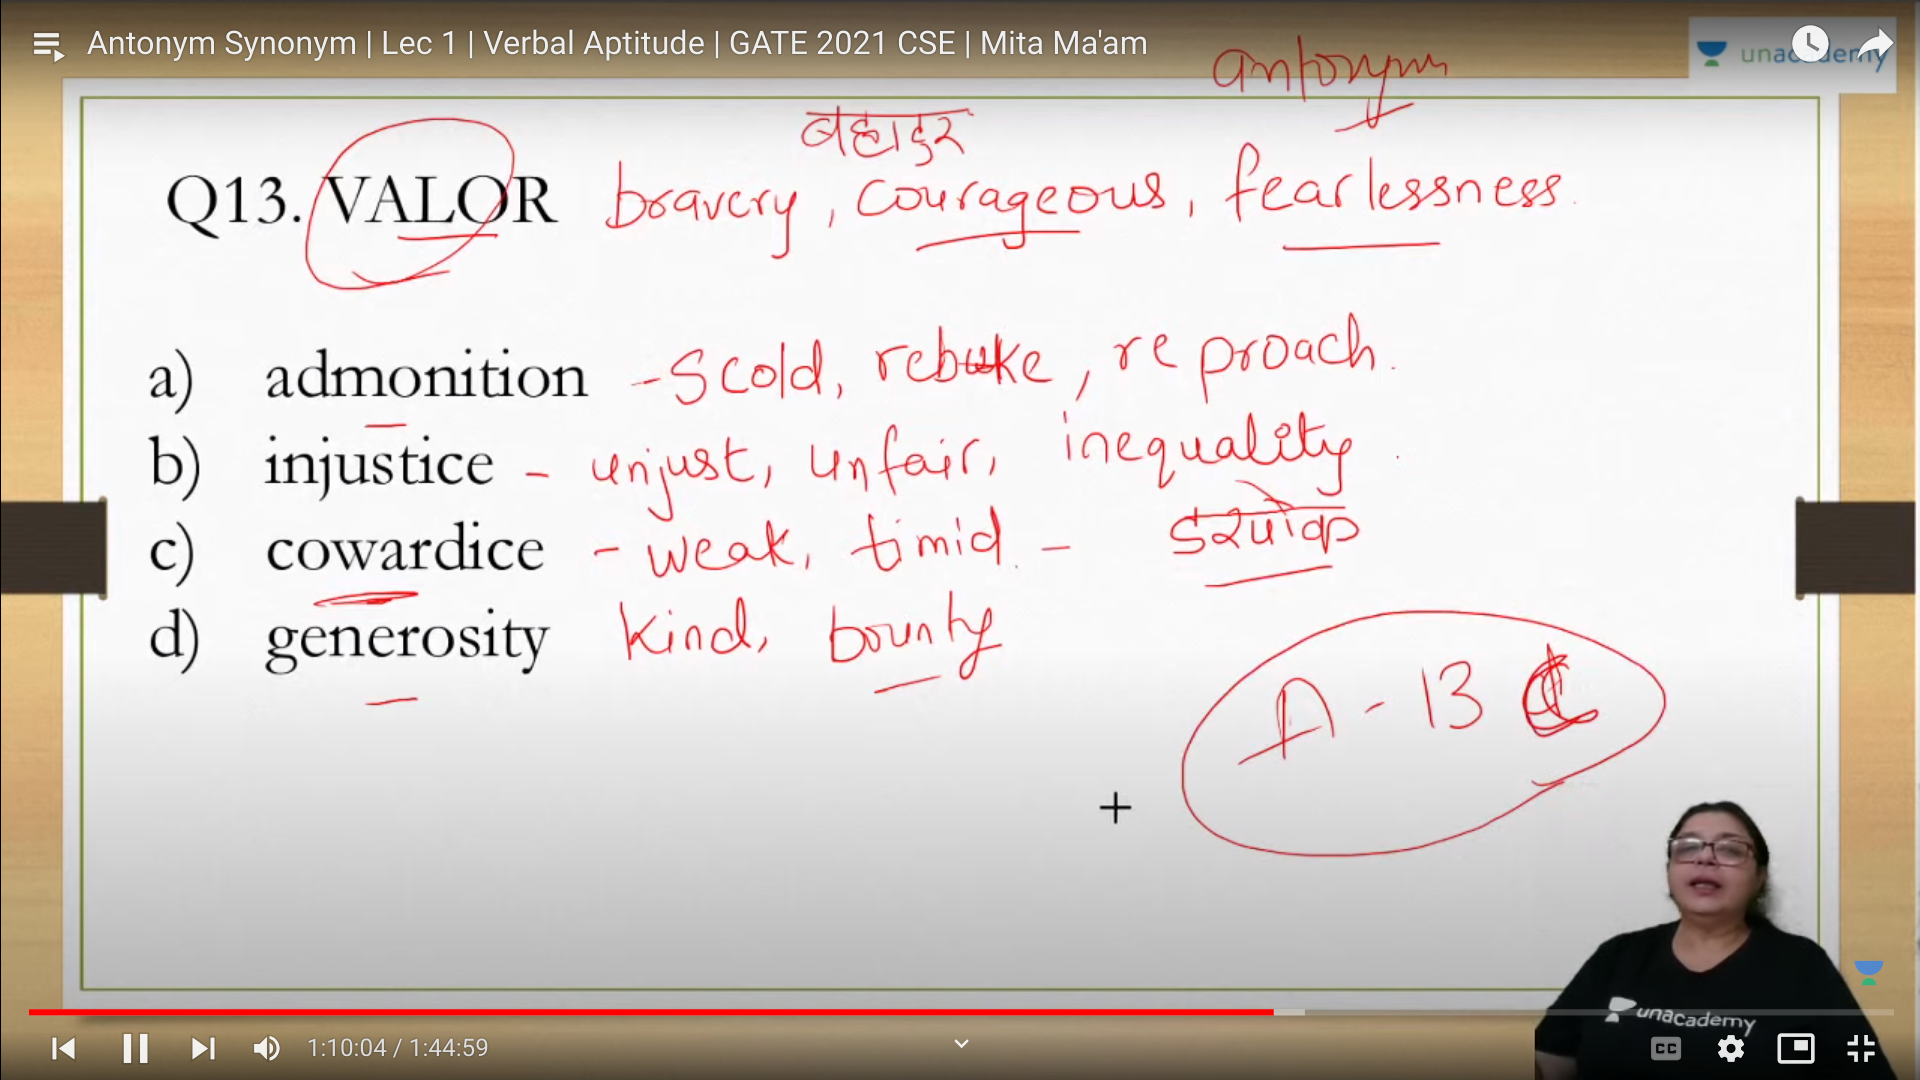 Antonym Synonym | Lec 1 | Verbal Aptitude | GATE 2021 CSE | Mita Ma'am
unacademy
antonym
बहादुर
Q13. VALOR bravery, courageous, fearlessness.
a) admonition - Scold, rebuke, reproach.
b) injustice - unjust, unfair, inequality.
c) cowardice - weak, timid. - डरपोक
d) generosity kind, bounty
A - 13 C
unacademy
1:10:04 / 1:44:59
CC